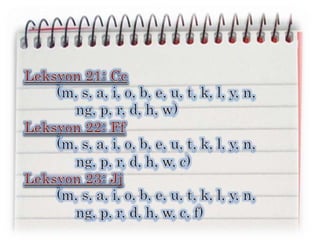 Leksyon 21: Cc
(m, s, a, i, o, b, e, u, t, k, l, y, n,
ng, p, r, d, h, w)
Leksyon 22: Ff
(m, s, a, i, o, b, e, u, t, k, l, y, n,
ng, p, r, d, h, w, c)
Leksyon 23: Jj
(m, s, a, i, o, b, e, u, t, k, l, y, n,
ng, p, r, d, h, w, c, f)